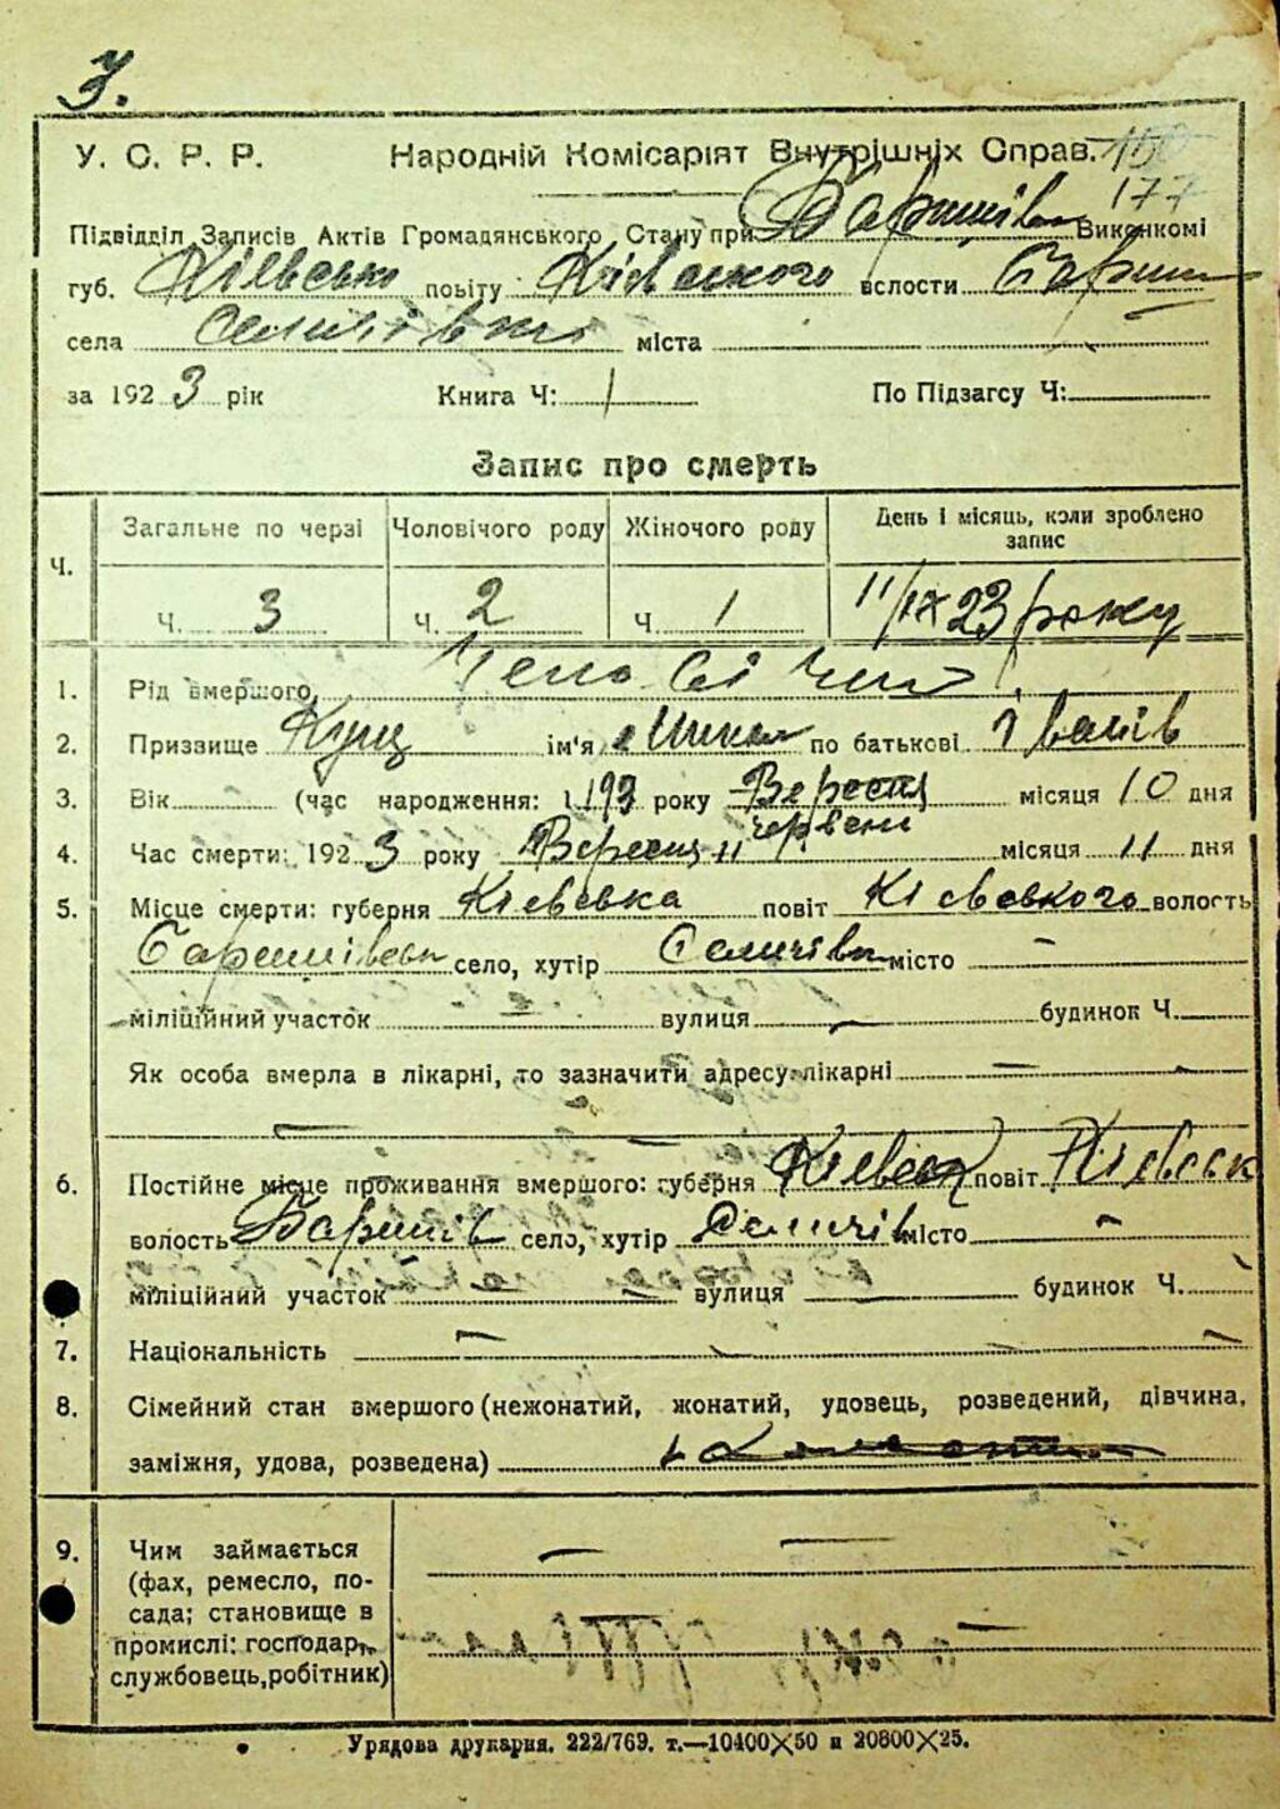 3.
У. С. Р. Р. Народній Комісаріят Внутрішніх Справ. 150
177
Підвідділ Записів Актів Громадянського Стану при Баришівськ Виконкомі
губ. Київсько повіту Київського волости Бариш
села Селичівки міста
за 1923 рік Книга Ч: 1 По Підзагсу Ч:
Запис про смерть
Ч. Загальне по черзі Чоловічого роду Жіночого роду День і місяць, коли зроблено запис
Ч. 3 Ч. 2 Ч 1 11/IX 23 року
1. Рід вмершого Чоловічий
2. Призвище Куц ім'я Микол по батькові Іванів
3. Вік (час народження: 1193 року Вересня місяця 10 дня
червени
4. Час смерти: 1923 року Вересня 11 місяця 11 дня
5. Місце смерти: губерня Кієвська повіт Кієвського волость
Баришівськ село, хутір Селичівк місто —
міліційний участок — вулиця — будинок Ч.
Як особа вмерла в лікарні, то зазначити адресу лікарні —
6. Постійне місце проживання вмершого: губерня Кієвськ повіт Кієвськ
волость Баришів село, хутір Селичів місто —
міліційний участок — вулиця будинок Ч.
7. Національність —
8. Сімейний стан вмершого (нежонатий, жонатий, удовець, розведений, дівчина,
заміжня, удова, розведена)
9. Чим займається
(фах, ремесло, по-
сада; становище в
промислі: господар,
службовець, робітник)
Урядова друкарня. 222/769. т.—10400×50 и 20800×25.